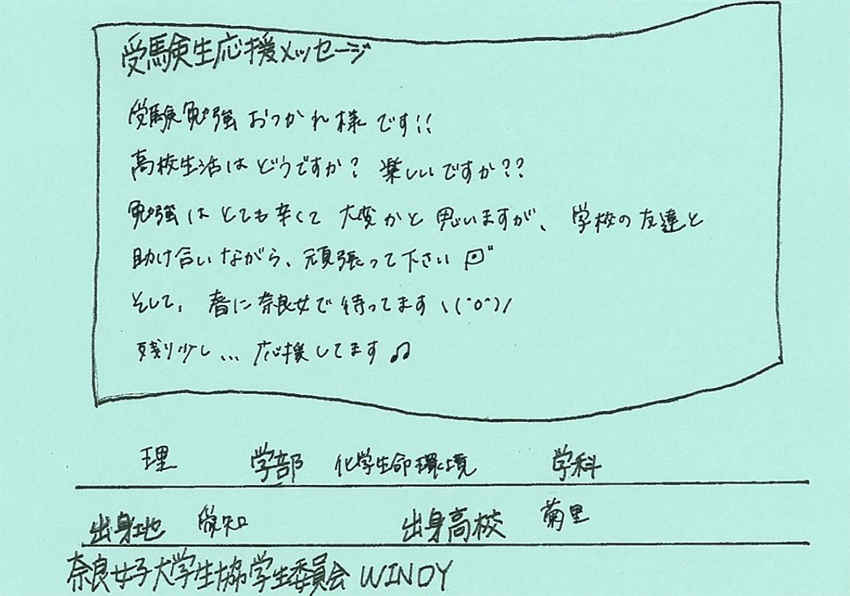 受験生応援メッセージ
受験勉強おつかれ様です!!
高校生活はどうですか? 楽しいですか??
勉強はとても辛くて大変かと思いますが、学校の友達と
助け合いながら、頑張って下さい
そして、春に奈良女で待ってますヽ(^o^)ノ
残り少し... 応援してます♫
理 学部 化学生命環境 学科
出身地 愛知 出身高校 菊里
奈良女子大学生協学生委員会 WINDY